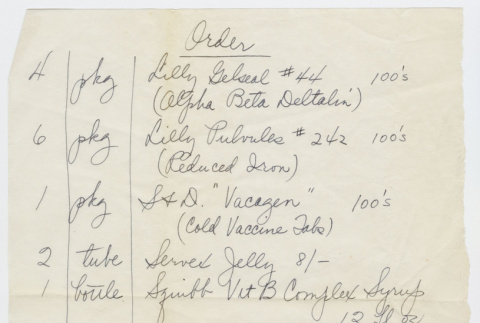 Order
4 pkg Lilly Gelseal #44 100's
(Alpha Beta Deltalin)
6 pkg Lilly Pulvules #242 100's
(Reduced Iron)
1 pkg S&D. "Vacagen" 100's
(Cold Vaccine Tabs)
2 tube Servex Jelly 8/-
1 bottle Squibb Vit B Complex Syrup
12